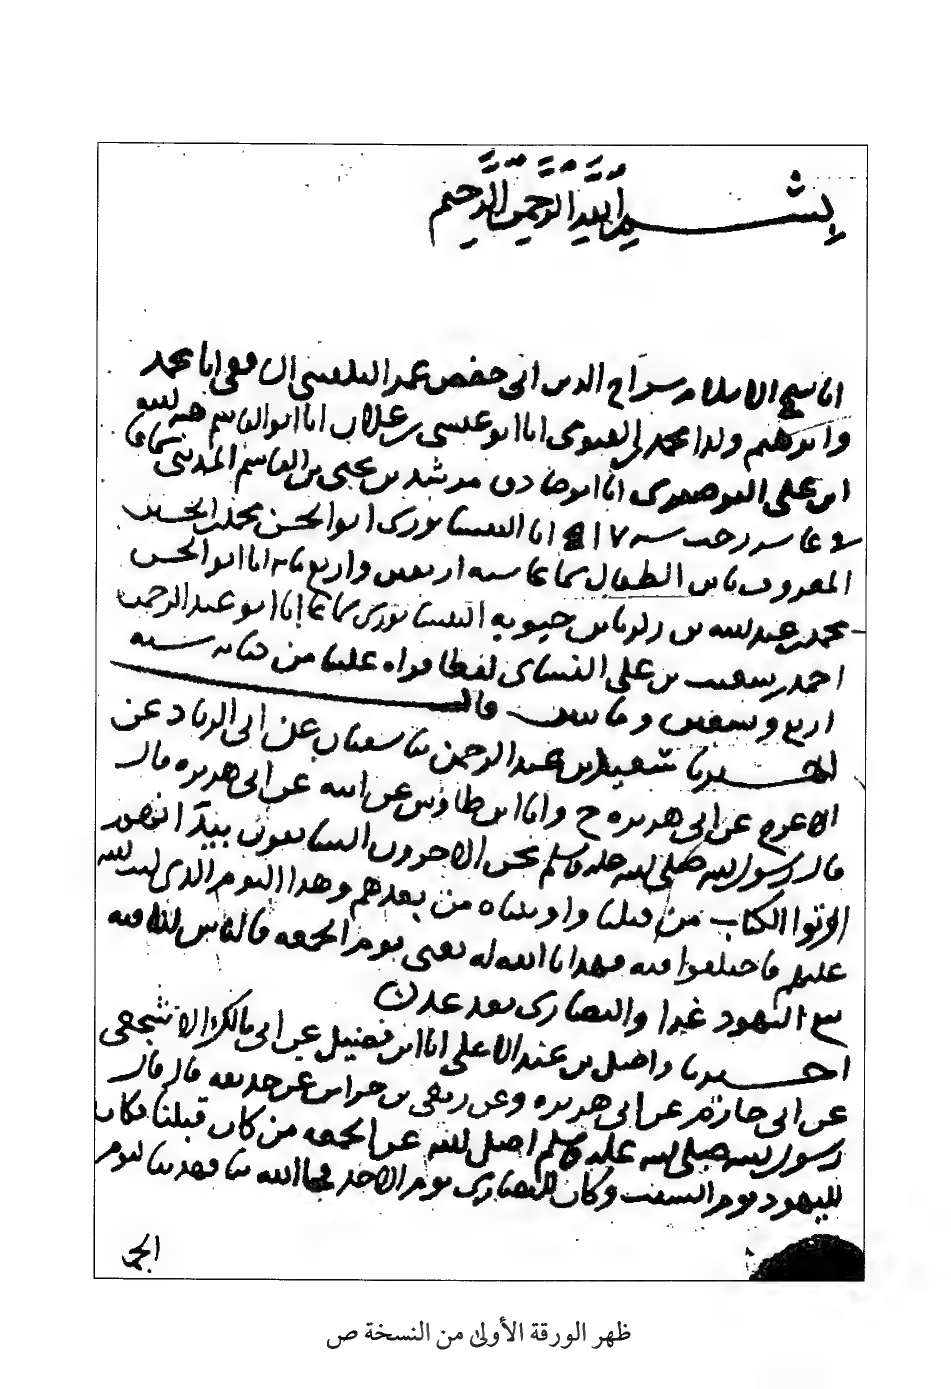 بسم الله الرحمن الرحيم
انا شيخ الاسلام سراج الدين ابى حفص عمر البلقينى الشافعى انا محمد
وابرهيم ولدا محمد الفيومى انا ابو عيسى بن علاق انا ابو القاسم هبة الله
ابن على البوصيرى انا ابو صادق مرشد بن يحيى بن القاسم المدينى سماعا
فى رجب سنة ٥١٧ انا النيسابورى ابو الحسن محمد بن الحسين
المعروف بابن الطفال سماعا سنة اربعين واربع مائة انا ابو الحسن
محمد بن عبد الله بن زكريا بن حيويه النيسابورى سماعا انا ابو عبد الرحمن
احمد بن شعيب بن على النسائى لفظا قراه علينا من كتابه سنة
اربع وتسعين ومايتين قال
اخبرنا سعيد بن عبد الرحمن نا سفيان عن ابى الزناد عن
الاعرج عن ابى هريرة ح وانا ابن طاوس عن ابيه عن ابى هريرة قال
قال رسول الله صلى الله عليه وسلم نحن الاخرون السابقون بيد انهم
اوتوا الكتاب من قبلنا واوتيناه من بعدهم وهذا اليوم الذى كتب الله
عليهم فاختلفوا فيه فهدانا الله له يعنى يوم الجمعة فالناس لنا فيه
تبع اليهود غدا والنصارى بعد غد
اخبرنا واصل بن عبد الاعلى انا ابن فضيل عن ابى مالك الاشجعى
عن ابى حازم عن ابى هريرة وعن ربعى بن حراش عن حذيفة قال قال
رسول الله صلى الله عليه وسلم اضل الله عن الجمعة من كان قبلنا فكان
لليهود يوم السبت وكان للنصارى يوم الاحد فجا الله بنا فهدينا ليوم
الجمـ
ظهر الورقة الأولى من النسخة ص